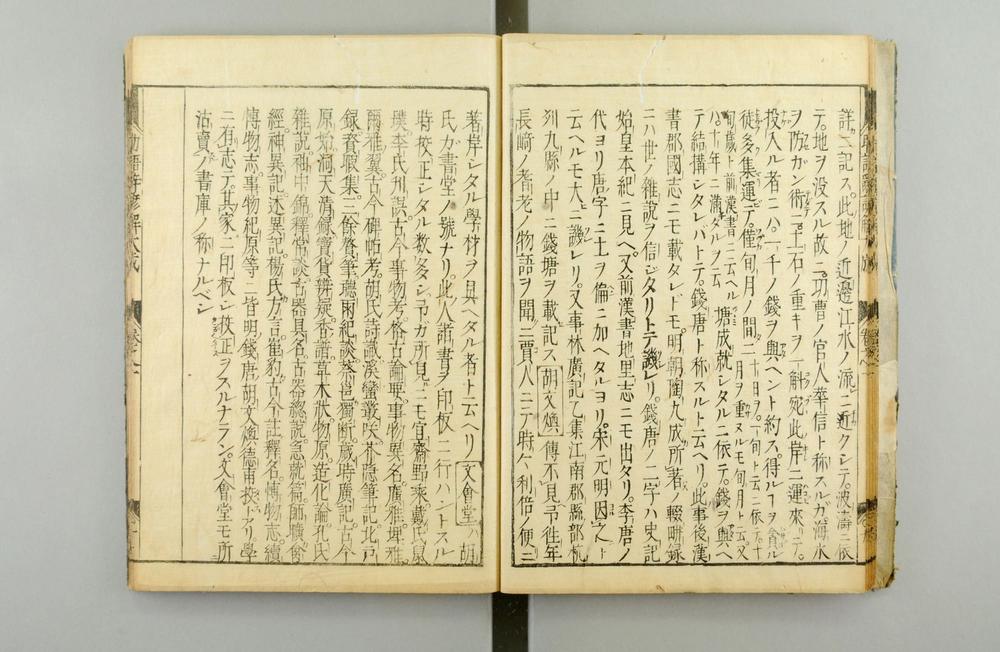 詳ニ記ス此地ノ近邊江水ノ流ニ近クシテ波濤ニ依
テ地ヲ没スル故ニ功曹ノ官人華信ト称スルガ海水
ヲ防ガン術ニ土石ノ重キヲ一斛宛此岸ニ運來リテ
投入ル者ニハ一千ノ錢ヲ與ヘント約ス得ルヿヲ貪ル
徒多集運テ僅旬月ノ間二十日ヲ一旬ト云ニ依テ十二月ヲ重ヌルモ旬月ト云又
旬歲ト前漢書ニ云ヘルハ十年ニ満タルヲ云塘成就シタルニ依テ錢ヲ與ヘ
テ結構シタレバトテ錢唐ト称スルト云ヘリ此事後漢
書郡國志ニモ載タレドモ明朝陶九成所著ノ輟畊録
ニハ世ノ雜説ヲ信ジタリトテ譏レリ錢唐ノ二字ハ史記
始皇本紀ニ見ヘ又前漢書地里志ニモ出タリ李唐ノ
代ヨリ唐字ニ土ヲ偏ニ加ヘタルヨリ宋元明因之ト
云ヘルモ大ニ譏レリ又事林廣記乙集江南郡縣部杭
列九縣ノ中ニ錢塘ヲ載記ス胡文煥傳不見予往年
長崎ノ耆老ノ物語ヲ聞ニ賈人ニテ時々利倍ノ便ニ
著岸シタル學材ヲ具ヘタル者ト云ヘリ文會堂ハ胡
氏ガ書堂ノ號ナリ此人諸書ヲ印板ニ行ハントスル
時校正シタル数多シ予ガ所見ニモ官齋野乘戴氏鼠
璞李氏刋誤古今事物考格古論要事物異名廣雅埤雅
爾雅翼古今碑帖考胡氏詩識溪蠻叢咲朴隱筆記北戸
録資暇集三餘贅筆聽雨紀談茶邕獨斷歲時廣記古今
原始洞天清録寶貨辨疑香譜草木狀物原造化論孔氏
雜説袖中錦釋常談古器具名古器總説急就篇師曠禽
經神異記述異記楊氏方言崔豹古今註釋名博物志續
博物志事物紀原等ニ皆明錢唐胡文煥德甫挍トアリ學
ニ有志テ其家ニ印板シ挍正ヲスルナラン文會堂モ所
沽賣ノ書庫ノ称ナルベシ